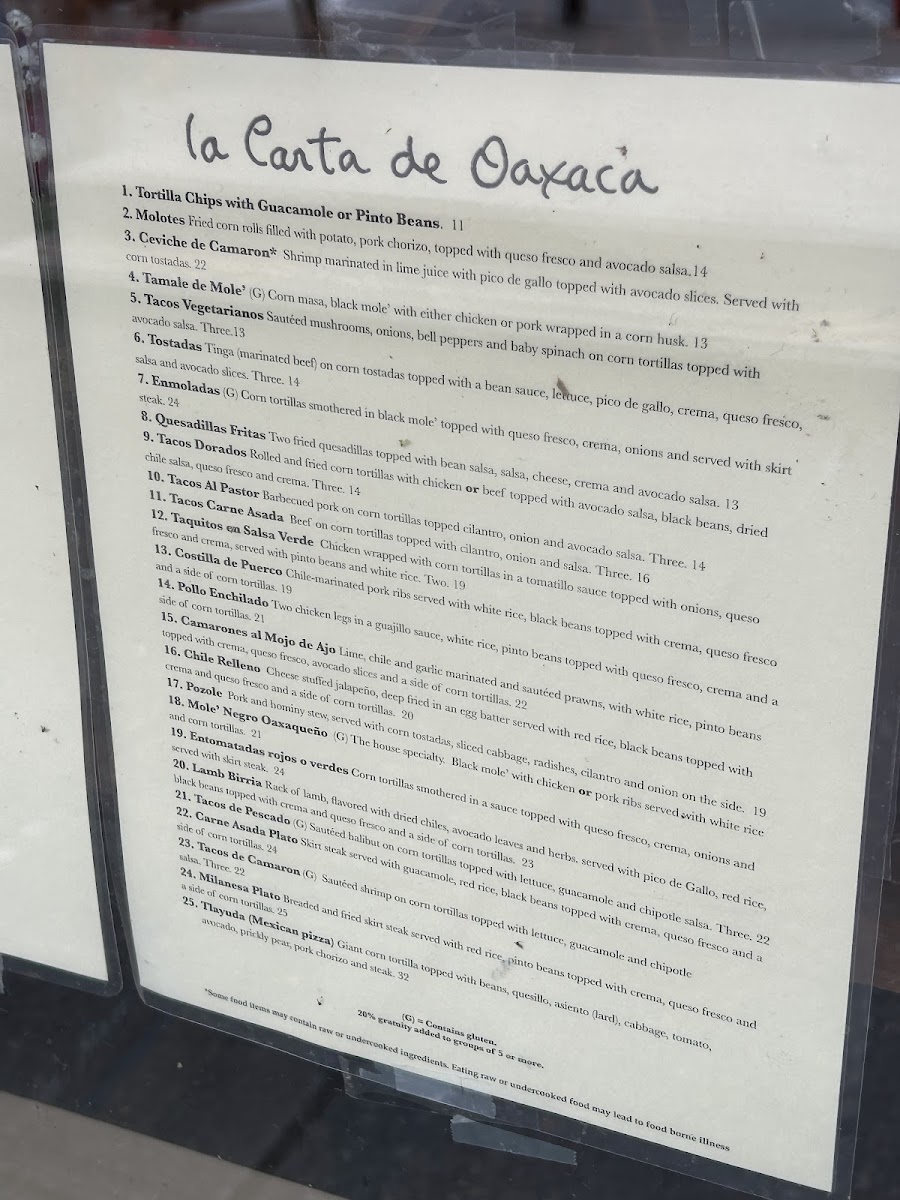 la Carta de Oaxaca
1. Tortilla Chips with Guacamole or Pinto Beans. 11
2. Molotes Fried corn rolls filled with potato, pork chorizo, topped with queso fresco and avocado salsa.14
3. Ceviche de Camaron* Shrimp marinated in lime juice with pico de gallo topped with avocado slices. Served with
corn tostadas. 22
4. Tamale de Mole' (G) Corn masa, black mole' with either chicken or pork wrapped in a corn husk. 13
5. Tacos Vegetarianos Sautéed mushrooms, onions, bell peppers and baby spinach on corn tortillas topped with
avocado salsa. Three.13
6. Tostadas Tinga (marinated beef) on corn tostadas topped with a bean sauce, lettuce, pico de gallo, crema, queso fresco,
salsa and avocado slices. Three. 14
7. Enmoladas (G) Corn tortillas smothered in black mole' topped with queso fresco, crema, onions and served with skirt
steak. 24
8. Quesadillas Fritas Two fried quesadillas topped with bean salsa, salsa, cheese, crema and avocado salsa. 13
9. Tacos Dorados Rolled and fried corn tortillas with chicken or beef topped with avocado salsa, black beans, dried
chile salsa, queso fresco and crema. Three. 14
10. Tacos Al Pastor Barbecued pork on corn tortillas topped cilantro, onion and avocado salsa. Three. 14
11. Tacos Carne Asada Beef on corn tortillas topped with cilantro, onion and salsa. Three. 16
12. Taquitos en Salsa Verde Chicken wrapped with corn tortillas in a tomatillo sauce topped with onions, queso
fresco and crema, served with pinto beans and white rice. Two. 19
13. Costilla de Puerco Chile-marinated pork ribs served with white rice, black beans topped with crema, queso fresco
and a side of corn tortillas. 19
14. Pollo Enchilado Two chicken legs in a guajillo sauce, white rice, pinto beans topped with queso fresco, crema and a
side of corn tortillas. 21
15. Camarones al Mojo de Ajo Lime, chile and garlic marinated and sautéed prawns, with white rice, pinto beans
topped with crema, queso fresco, avocado slices and a side of corn tortillas. 22
16. Chile Relleno Cheese stuffed jalapeño, deep fried in an egg batter served with red rice, black beans topped with
crema and queso fresco and a side of corn tortillas. 20
17. Pozole Pork and hominy stew, served with corn tostadas, sliced cabbage, radishes, cilantro and onion on the side. 19
18. Mole' Negro Oaxaqueño (G) The house specialty. Black mole' with chicken or pork ribs served with white rice
and corn tortillas. 21
19. Entomatadas rojos o verdes Corn tortillas smothered in a sauce topped with queso fresco, crema, onions and
served with skirt steak. 24
20. Lamb Birria Rack of lamb, flavored with dried chiles, avocado leaves and herbs. served with pico de Gallo, red rice,
black beans topped with crema and queso fresco and a side of corn tortillas. 23
21. Tacos de Pescado (G) Sautéed halibut on corn tortillas topped with lettuce, guacamole and chipotle salsa. Three. 22
22. Carne Asada Plato Skirt steak served with guacamole, red rice, black beans topped with crema, queso fresco and a
side of corn tortillas. 24
23. Tacos de Camaron (G) Sautéed shrimp on corn tortillas topped with lettuce, guacamole and chipotle
salsa. Three. 22
24. Milanesa Plato Breaded and fried skirt steak served with red rice, pinto beans topped with crema, queso fresco and
a side of corn tortillas. 25
25. Tlayuda (Mexican pizza) Giant corn tortilla topped with beans, quesillo, asiento (lard), cabbage, tomato,
avocado, prickly pear, pork chorizo and steak. 32
(G) = Contains gluten.
20% gratuity added to groups of 5 or more.
*Some food items may contain raw or undercooked ingredients. Eating raw or undercooked food may lead to food borne illness